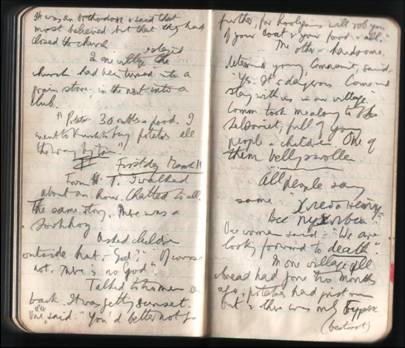 He was an Orthodox & said that
most believed but that they had
closed the church
In one village the
church had been turned into a
grain store, in the next into a
club.
"Potato 30 roubles a pood. I
went to to buy potatoes all
the way by
First day March 11
From H. T. I walked
about an hour. Chatted to all.
The same story. There was a
Sovkhoz
Asked children
outside hut, "God?" "Of course
not. There is no god".
Talked to two men
back. It was getting sunset.
One said: "You'd better not go
further, for hooligans will rob you
of your coat & your food & all."
The other, handsome,
determined young Communist, said:
"Yes. It's dangerous. Come and
stay with us in our village.
Comm. took me along to
Selsoviet, full of young
people & children. One of
them belly swollen
All people say
same
One woman said: "We are
look forward to death"
In one village all
bread had gone two months
ago, potatoes had just run
out & there was only
(beetroot)